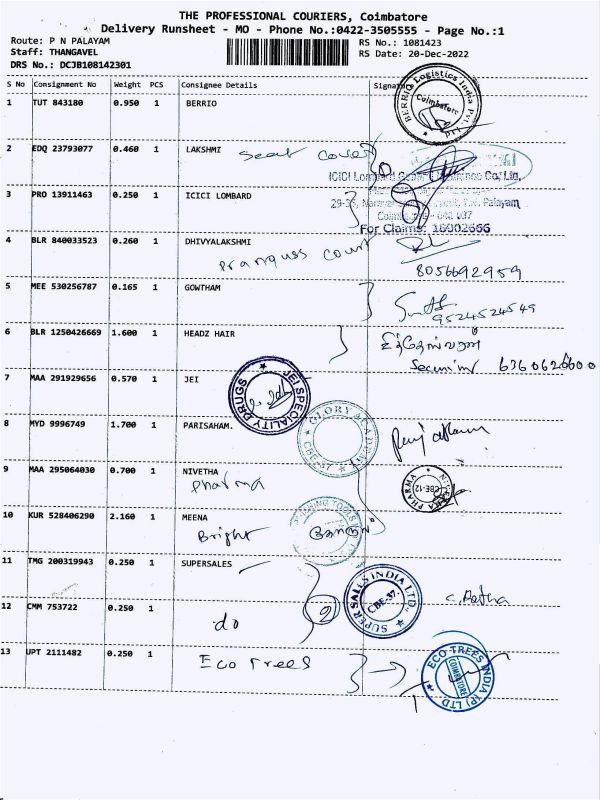 THE PROFESSIONAL COURIERS, Coimbatore
Delivery Runsheet - MO - Phone No.:0422-3505555 - Page No.:1
Route: P N PALAYAM
Staff: THANGAVEL
DRS No.: DCJB108142301
RS No.: 1081423
RS Date: 20-Dec-2022
S No Consignment No Weight PCS Consignee Details Signature
1 TUT 843180 0.950 1 BERRIO
BERRIO Logistics India Pvt. Ltd
Coimbatore
2 EDQ 23793077 0.460 1 LAKSHMI
Seat Cover
3 PRO 13911463 0.250 1 ICICI LOMBARD
Palayam
For Claims: 18002666
4 BLR 840033523 0.260 1 DHIVYALAKSHMI
court
8056692959
5 MEE 530256787 0.165 1 GOWTHAM
9524524549
6 BLR 1250426669 1.600 1 HEADZ HAIR
7 MAA 291929656 0.570 1 JEI
JEI SPECIALITY DRUGS
8 MYD 9996749 1.700 1 PARISAHAM.
GLORY ACADEMY
CBE-37
9 MAA 295064030 0.700 1 NIVETHA
Pharma
PHARMA
CBE-12
10 KUR 528406290 2.160 1 MEENA
Bright
TOOLS
11 TMG 200319943 0.250 1 SUPERSALES
SUPER SALES INDIA LTD.
CBE-37.
12 CMM 753722 0.250 1
do
2
13 UPT 2111482 0.250 1
Eco Trees
ECO-TREES INDIA (P) LTD
COIMBATORE